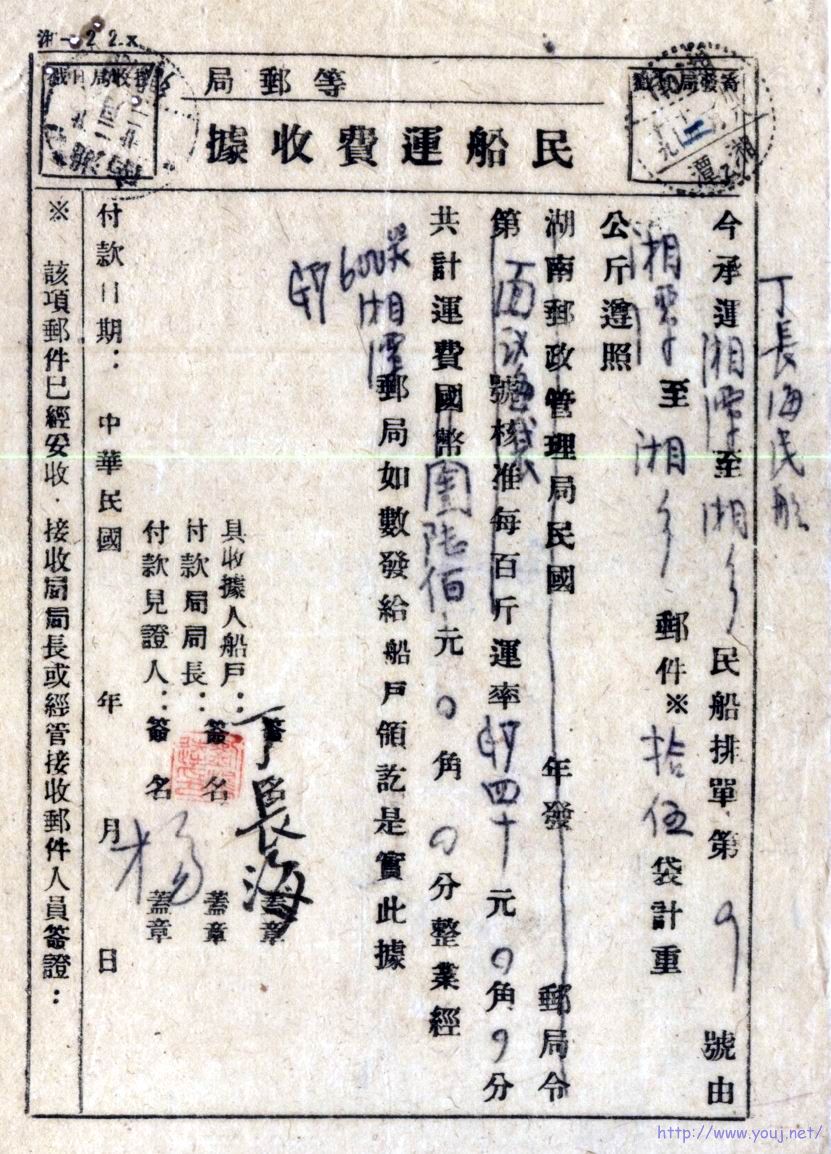 湘-22.x
等郵局
民船運費收據
寄發局日戳
接收局日戳
湘潭
丁長海民船
今承運湘潭至湘乡民船排單第9號由
湘潭至湘乡郵件※拾伍袋計重
公斤遵照
湖南郵政管理局民國 年發 郵局令
第面議號核准每百斤運率四十元0角0分
共計運費國幣陸佰元0角0分整業經
600湘潭郵局如數發給船戶領訖是實此據
具收據人船戶：簽名 丁長海 蓋章
付款局局長：簽名 蓋章
付款見證人：簽名 楊 蓋章
付款日期： 中華民國 年 月 日
※ 該項郵件已經妥收．接收局局長或經管接收郵件人員簽證：
http://www.youj.net/